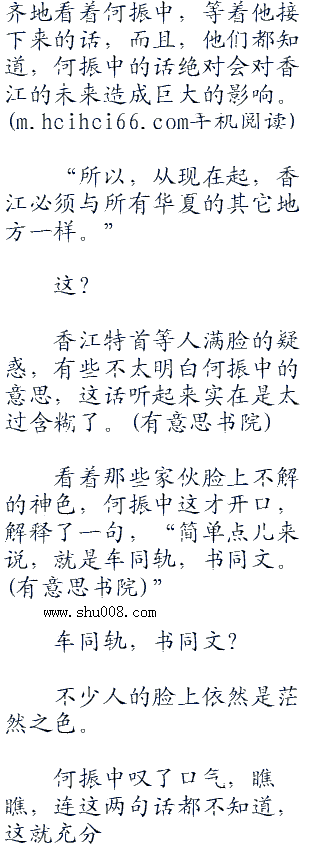 齐地看着何振中，等着他接
下来的话，而且，他们都知
道，何振中的话绝对会对香
江的未来造成巨大的影响。
(m.hcihci66.com手机阅读)
“所以，从现在起，香
江必须与所有华夏的其它地
方一样。”
这？
香江特首等人满脸的疑
惑，有些不太明白何振中的
意思，这话听起来实在是太
过含糊了。(有意思书院)
看着那些家伙脸上不解
的神色，何振中这才开口，
解释了一句，“简单点儿来
说，就是车同轨，书同文。
(有意思书院)”
www.shu008.com
车同轨，书同文？
不少人的脸上依然是茫
然之色。
何振中叹了口气，瞧
瞧，连这两句话都不知道，
这就充分